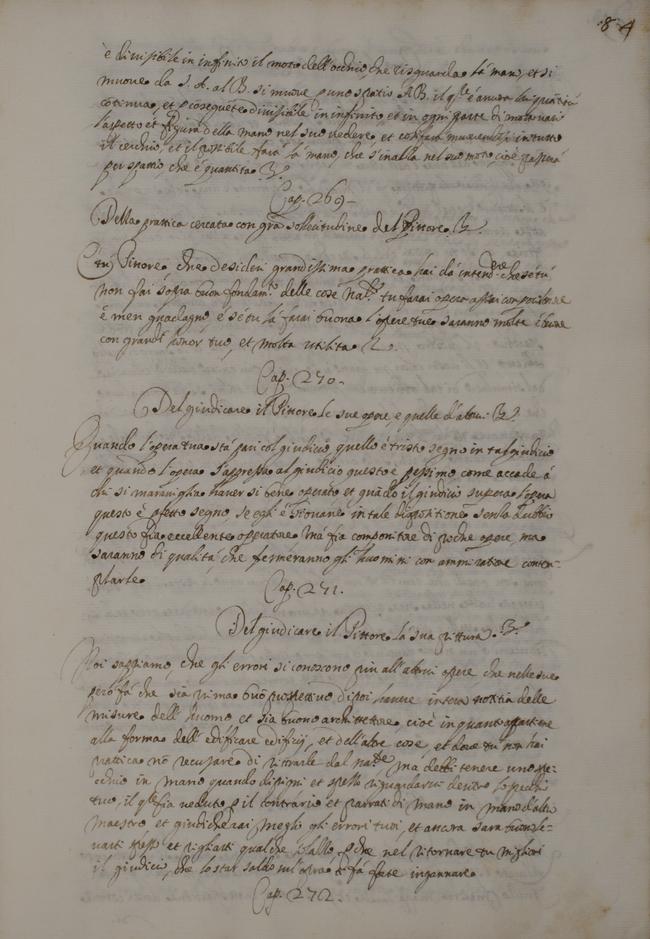 84
è divisibile in infinito il moto dell'occhio che risguarda la mano, et si
muove da S. A. al B. si muove p uno spatio AB. il qle è ancora lui quantità
continua, et p conseguēte divisibile in infinito et in ogni parte di moto varia
l'aspetto et figura della mano nel suo vedere et così farà movendosi in tutto
il cerchio, et il simile farà la mano, che s'inalza nel suo moto, cioè passerà
per spatio, che è quantità
Cap. 269.
Della prattica cercata con grā sollecitudine del Pittore.
E tu Pittore che desideri grandissima prattica hai da intendere che se tu
non fai sopra buon fondamto delle cose natli tu farai opere assai con poco honore
è men guadagno, e se tu la farai buona l'opere tue saranno molte e buone
con grande honor tuo, et molta utilità
Cap. 270.
Del giudicare il Pittore le sue opere, e quelle d'altrui.
Quando l'opera tua stà pari col giudicio, quello è tristo segno in tal giudicio
et quando l'opera supera al giudicio questo è pessimo come accade à
chi si maraviglia haver si bene operato et quādo il giudicio supera l'opera
questo è pfetto segno, se egli è giovane in tale dispositione senza dubbio
questo fia eccellente operatore mà fia componitore di poche opere ma
saranno di qualità che fermeranno gl'huomini con ammiratione contem-
plarle.
Cap. 271.
Del giudicare il Pittore la sua pittura.
Noi sappiamo, che gli errori si conoscono piu all'altrui opere che nelle sue
però fà che sia prima buō prospettivo dipoi havere intera notitia delle
misure dell'huomo et sia buono architettore, cioè in quanto appartiene
alla forma dell'edificare edificij, et dell'altre cose et dove tu non hai
prattica nō recusare di ritrarle dal nale ma debbi tenere uno spe-
cchio in mano quando dipigni et spesso riguardarvi dentro lo specchio
tuo, il qle fia veduto p il contrario et parratti di mano in mano d'altro
maestro et giudicherai meglio gli errori tuoi, et ancora sarà buono le-
varsi spesso et pigliarsi qualche solazzo, pche nel ritornare tu migliori
il giudicio, che lo star saldo sul'opra ti fà forte ingannare.
Cap. 272.